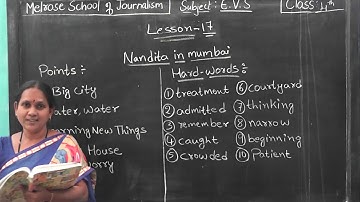 Melrose School of Journalism Subject: E.V.S Class: 4th
Lesson-17
Nandita in mumbai
Points:-
Big City
Water, Water
Learning New Things
House
Worry
Hard-Words:-
① treatment ⑥ courtyard
② admitted ⑦ thinking
③ remember ⑧ narrow
④ caught ⑨ beginning
⑤ crowded ⑩ patient